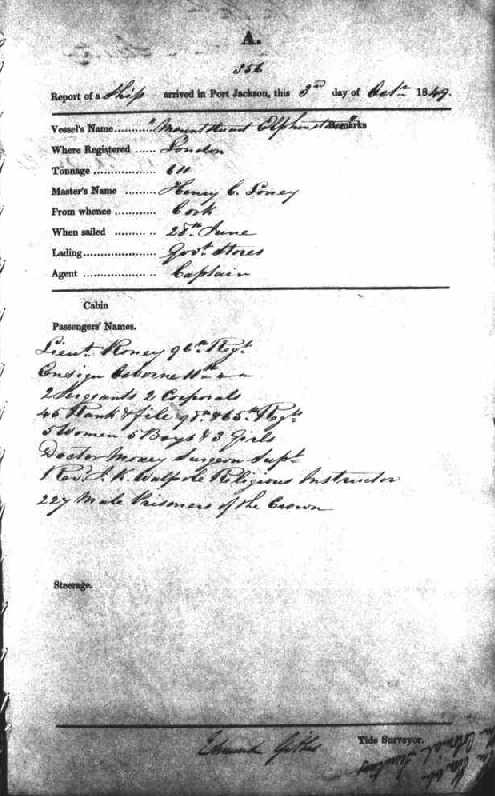 A.
356
Report of a Ship arrived in Port Jackson, this 3rd day of Octr. 1849.
Vessel's Name "Mountstuart Elphinstone" Remarks
Where Registered London
Tonnage 611
Master's Name Henry C.
From whence Cork
When sailed 28th June
Lading Govt Stores
Agent Captain
Cabin
Passengers' Names.
Lieut. Roney 96th Regt.
Ensign Osborne 11th
2 Sergeants 2 Corporals
46 Rank & file & 65th Regts
5 Women 5 Boys & 3 Girls
Doctor Moxey Surgeon Supt
1 Revd. J. K. Walpole Religious Instructor
227 Male Prisoners of the Crown
Steerage.
Tide Surveyor.